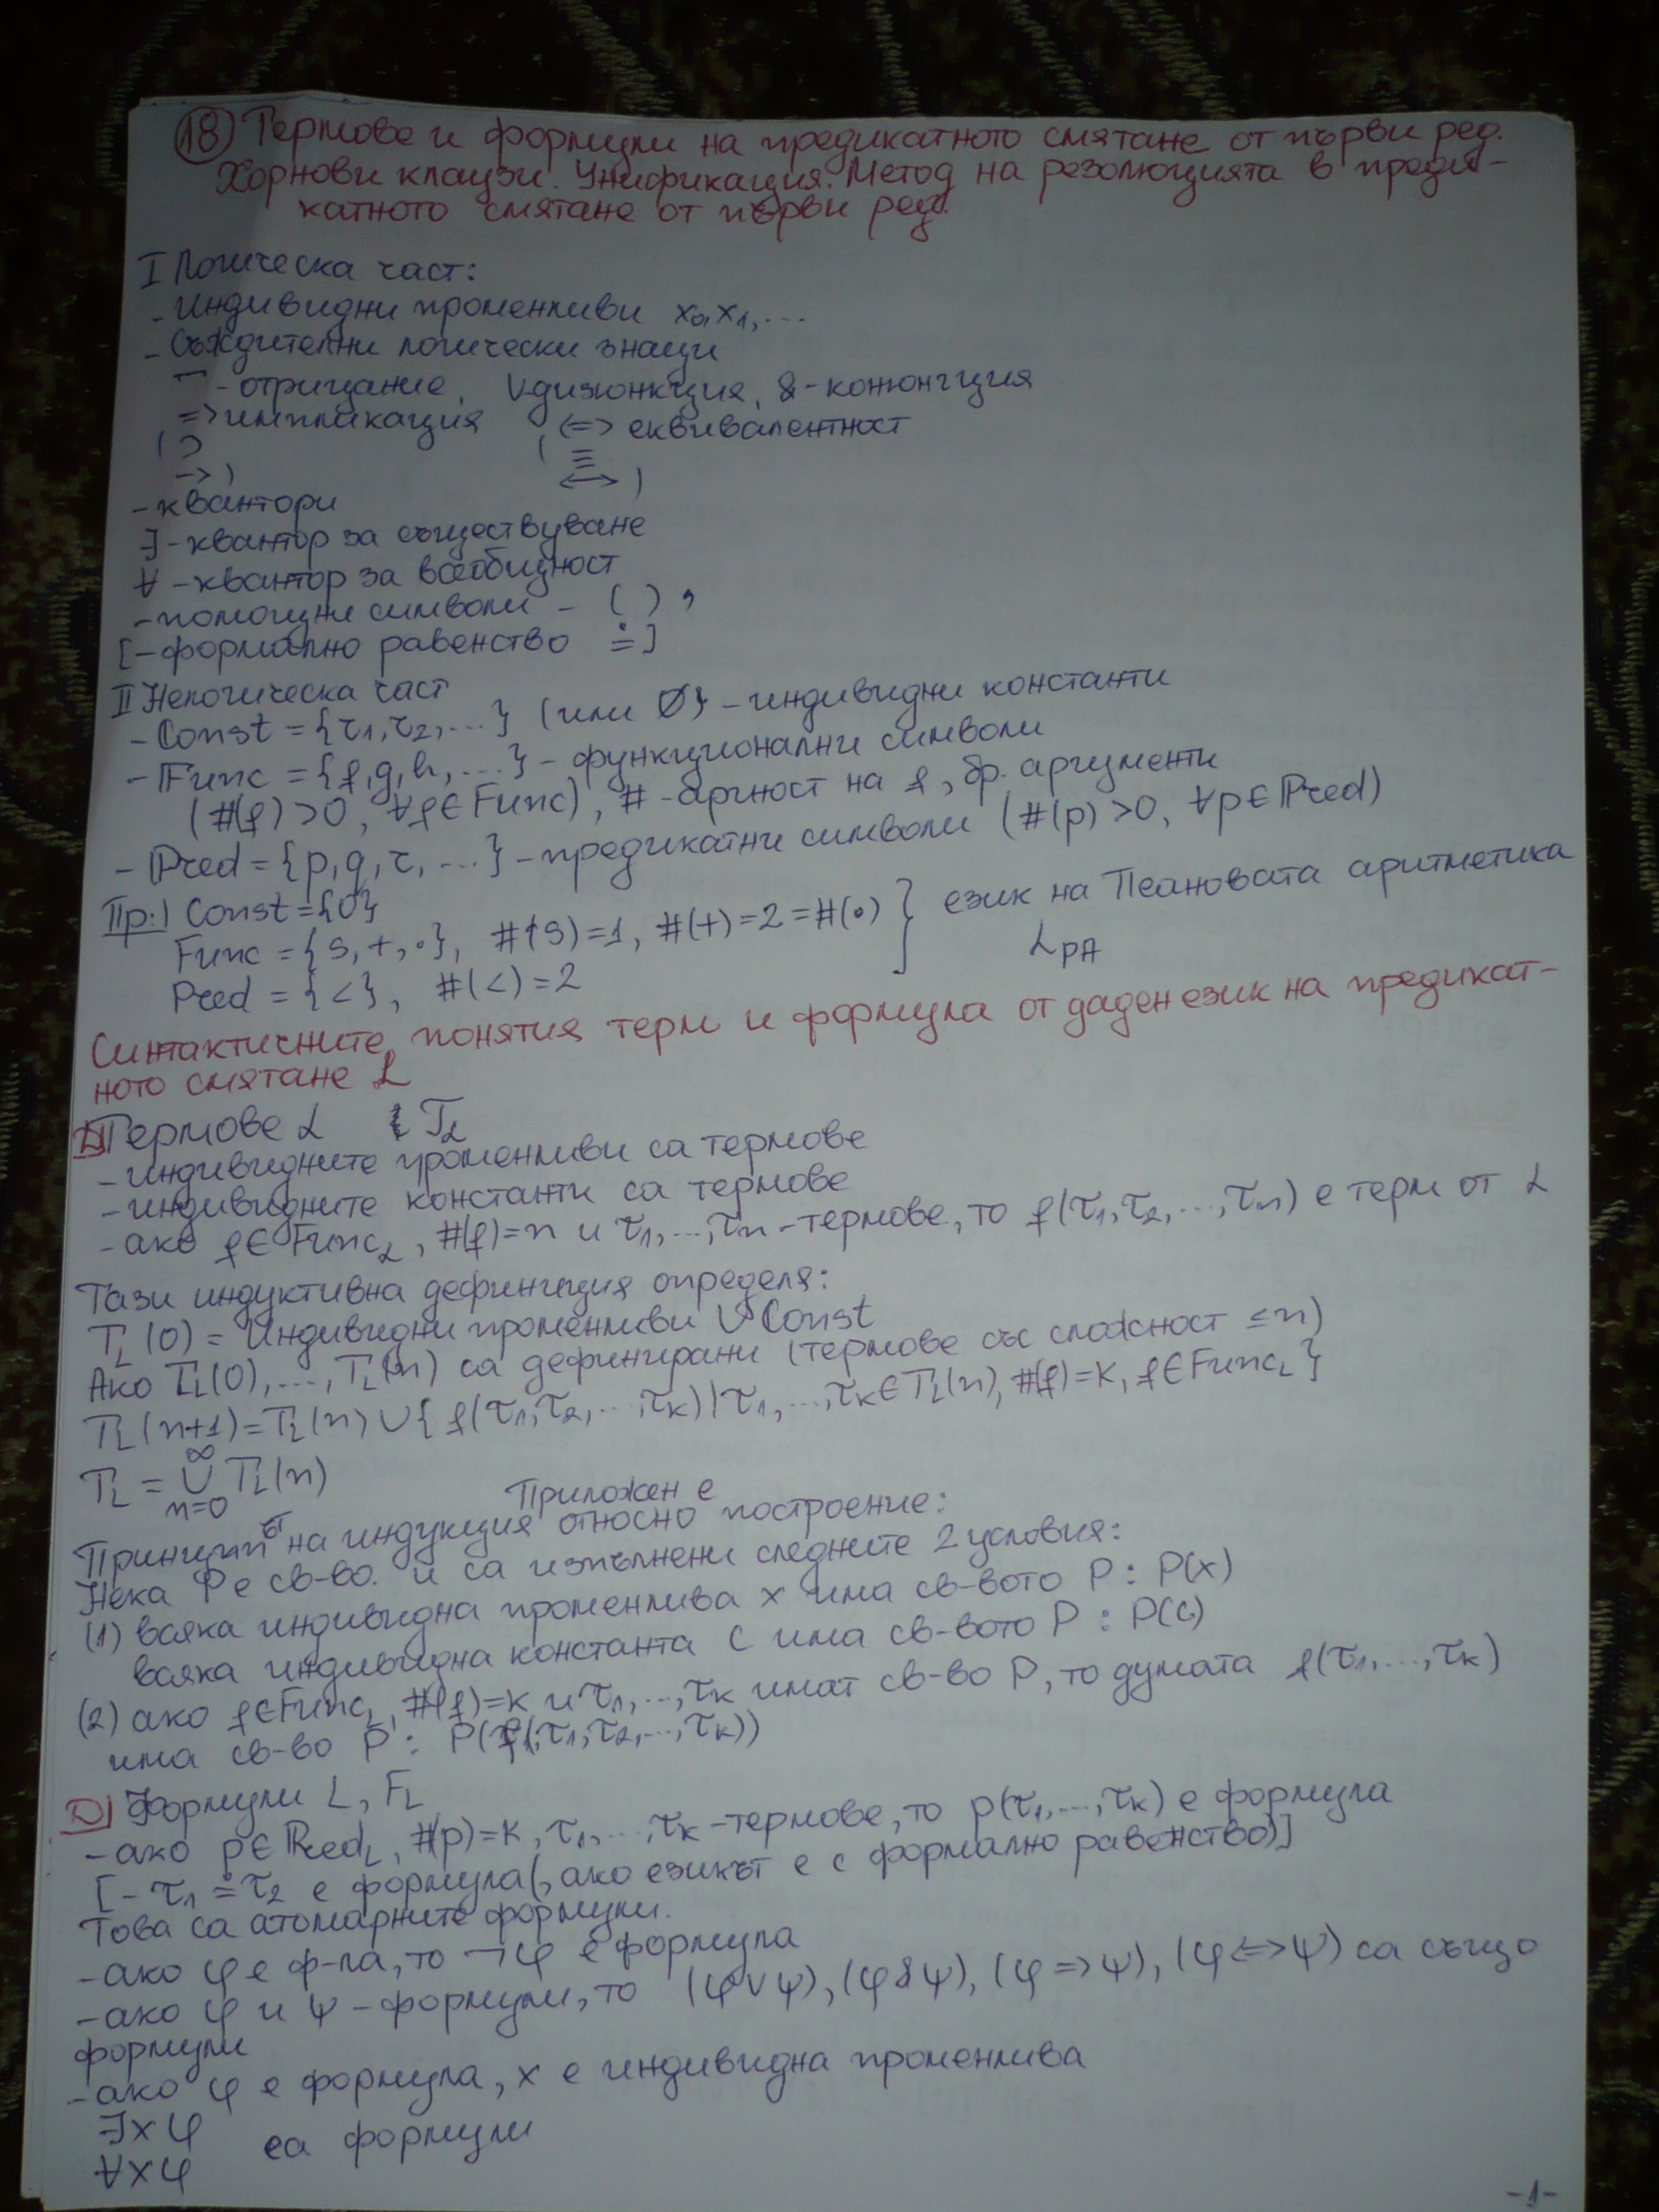 (18) Термове и формули на предикатното смятане от първи ред.
Хорнови клаузи. Унификация. Метод на резолюцията в преди-
катното смятане от първи ред.
I Логическа част:
- индивидни променливи x₀, x₁, ...
- Съждителни логически знаци
¬ - отрицание, ∨ дизюнкция, & - конюнкция
=> импликация <=> еквивалентност
( ⊃ ( ≡
→ ) ↔ )
- квантори
∃ - квантор за съществуване
∀ - квантор за всеобщност
- помощни символи - ( ) ,
[- формално равенство ≐ ]
II Нелогическа част
- Const = {τ₁, τ₂, ...} (или ∅} - индивидни константи
- Func = {f, g, h, ...} - функционални символи
(#(f) > 0, ∀f ∈ Func), # - арност на f, бр. аргументи
- Pred = {p, q, r, ...} - предикатни символи (#(p) > 0, ∀p ∈ Pred)
Пр:| Const = {0}
Func = {s, +, ·}, #(S) = 1, #(+) = 2 = #(·) } език на Пеановата аритметика
Pred = {<}, #(<) = 2 L_PA
Синтактичните понятия терм и формула от даден език на предикат-
ното смятане L
D| Термове L T_L
- индивидните променливи са термове
- индивидните константи са термове
- ако f ∈ Func_L, #(f) = n и τ₁, ..., τn - термове, то f(τ₁, τ₂, ..., τn) е терм от L
Тази индуктивна дефиниция определя:
T_L(0) = Индивидни променливи ∪ Const
Ако T_L(0), ..., T_L(n) са дефинирани (термове със сложност ≤ n)
T_L(n+1) = T_L(n) ∪ { f(τ₁, τ₂, ..., τk) | τ₁, ..., τk ∈ T_L(n), #(f) = k, f ∈ Func_L }
T_L = ∞∪n=0 T_L(n)
Приложен е
Принципът на индукция относно построение:
Нека P е св-во. и са изпълнени следните 2 условия:
(1) всяка индивидна променлива x има св-вото P : P(x)
всяка индивидна константа c има св-вото P : P(c)
(2) ако f ∈ Func_L, #(f) = k и τ₁, ..., τk имат св-во P, то думата f(τ₁, ..., τk)
има св-во P : P(f(τ₁, τ₂, ..., τk))
D| Формули L, F_L
- ако p ∈ Pred_L, #(p) = k, τ₁, ..., τk - термове, то p(τ₁, ..., τk) е формула
[- τ₁ ≐ τ₂ е формула (, ако езикът е с формално равенство)]
Това са атомарните формули.
- ако φ е ф-ла, то ¬φ е формула
- ако φ и ψ - формули, то (φ∨ψ), (φ&ψ), (φ=>ψ), (φ<=>ψ) са също
формули
- ако φ е формула, x е индивидна променлива
∃xφ са формули
∀xφ
-1-